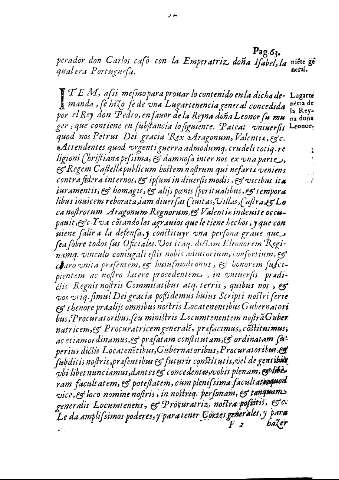 Pag. 63.
perador don Carlos casò con la Emperatriz, doña Isabel, la
qual era Portuguesa.
niēte ge
neral.
ITEM, assi mesmo para prouar lo contenido en la dicha de-
manda, se hizo fe de vna Lugartenencia general concedida
por el Rey don Pedro, en fauor de la Reyna doña Leonor su mu
ger, que contiene en substancia lo siguiente. Pateat vniuersis
quòd nos Petrus Dei gracia Rex Aragonum, Valentiæ, &c.
Attendentes quod vrgenti guerra admodumq. crudeli totiq. re
ligioni Christianæ pessima, & damnosa inter nos ex vna parte,
& Regem Castellæ publicum hostem nostrum qui nefariè veniens
contra fœdera internos, & ipsum in diuersis modis, & viribus iu
juramentis, & homagijs, & alijs pœnis spiritualibus, & tempora
libus inuicem roborata, iam diuersas Ciuitas, Villas, Castra & Lo
ca nostrorum Aragonum Regnorum, & Valentiæ indemitè occu-
pauit, &c. Y va côtando los agrauios que le tiene hechos, y que con
uiene salir a la defensa, y constituye vna persona graue que
sea sobre todos sus Oficiales. Vos itaq. dictam Eleonorem Regi-
namq. vinculo coniugali estis nobis adiutorium, consortium, &
charo vnita præsentem, & in
Lugarte
nēcia de
la Rey-
na doña
Leonor.
ciæ Regnis nostris Comitatibus atq. terris, quibus nos, &
nos vtiq. simul Dei gracia possidemus huius Scripti nostri serie
& thenore præalijs omnibus nostris Locatenentibus Gubernatori
bus, Procuratoribus, seu ministris Locumtenentem nostrã Guber
natricem, & Procuratricem generalē, præfecimus, cōstituimus,
ac etiam ordinamus, & præsatam constitutam, & ordinatam su-
perius dictis Locatenētibus, Gubernatoribus, Procuratoribus, &
subditis nostris, præsentibus & futuris constitutis, vel de gentibus
vbi libet nunciamus, dantes & concedentes vobis plenam, & libe-
ram facultatem, & potestatem, cum plenissima facultate quod
vice, & loco nomine nostris, in nostrẽq. personam, & tanquam
generalis Locumtenens, & Procuratrix, nostra possitis, &c.
Le da amplissimos poderes, y para tener Cortes generales, y para
F 2
hazer